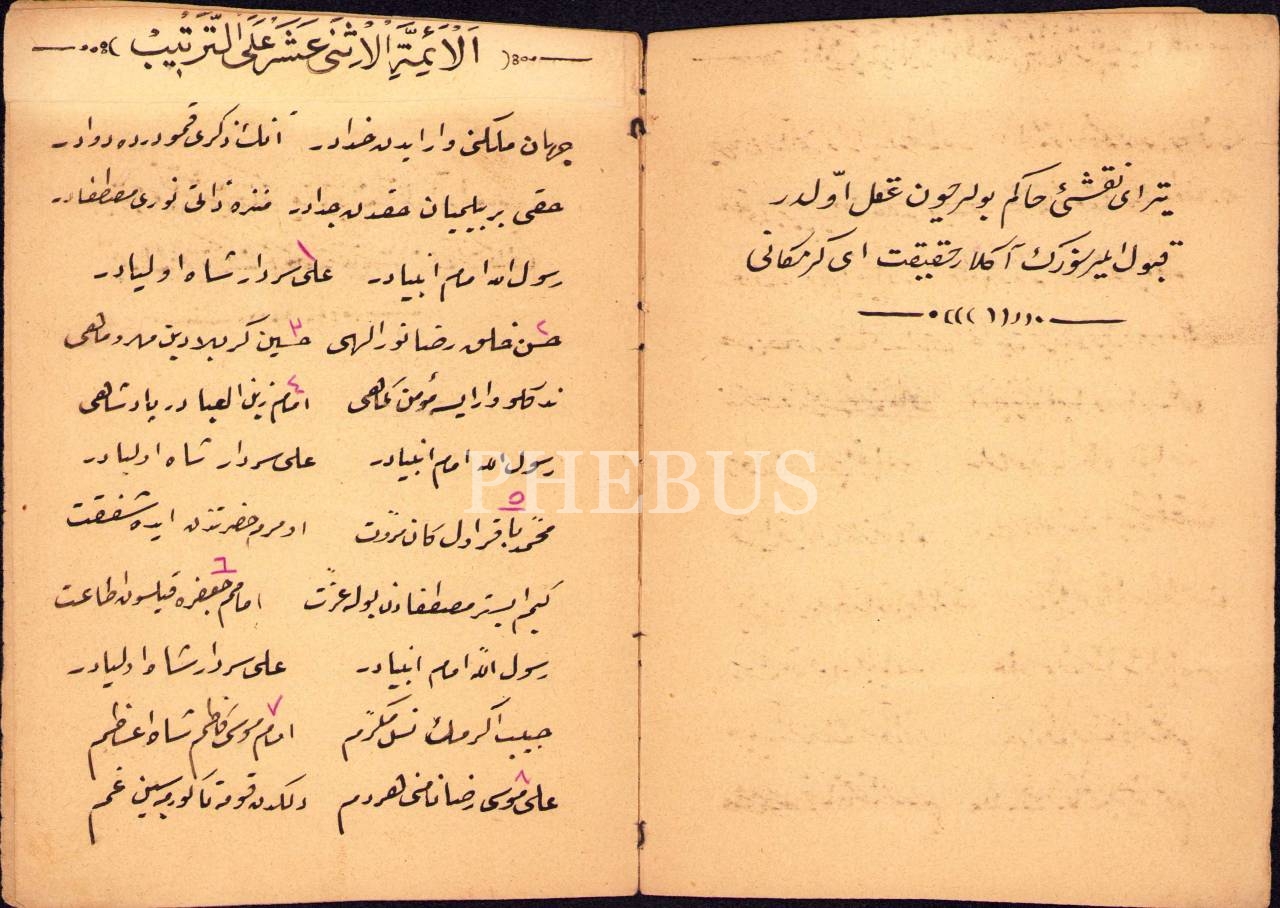 یتر ای نقشئ حاکم بولر چون عقل اوّلدر
قبول ایلر سوزك آكلار حقیقت ای کرمکانی
اَلْاَئِمَّةِ الْاِثْنٰی عَشَرْ عَلَی التَّرَتِیْبْ
جهان ملكنی وار ایدن خدادر آنك ذکری قمو درده دوادر
حقی بر بیلمیان حقدن جدادر منزه ذاتی نوری مصطفادر
رسول الله امام انبیادر علی سردار شاه اولیادر ١
حسن خلق رضا نور الهی ٢ حسین کربلا دین مهر و ماهی ٣
نه كلو وار ایسه مؤمن كناهی امام زین العبادر پادشاهی ٤
رسول الله امام انبیادر علی سردار شاه اولیادر
PHEBUS
محمّد باقر اول کان مروّت ٥ اومرم حضرتندن ایده شفقت
كیم ایستر مصطفادن بوله عزّت امامم جعفره قیلسون اطاعت ٦
رسول اللّه امام انبیادر علی سردار شاه اولیادر
حبیب اکرمك نسل مکرّم امام موسی کاظم شاه اعظم ٧
علی موسی رضا نامنی هردم ٨ دلكدن قومه تا كورمیه سین غم